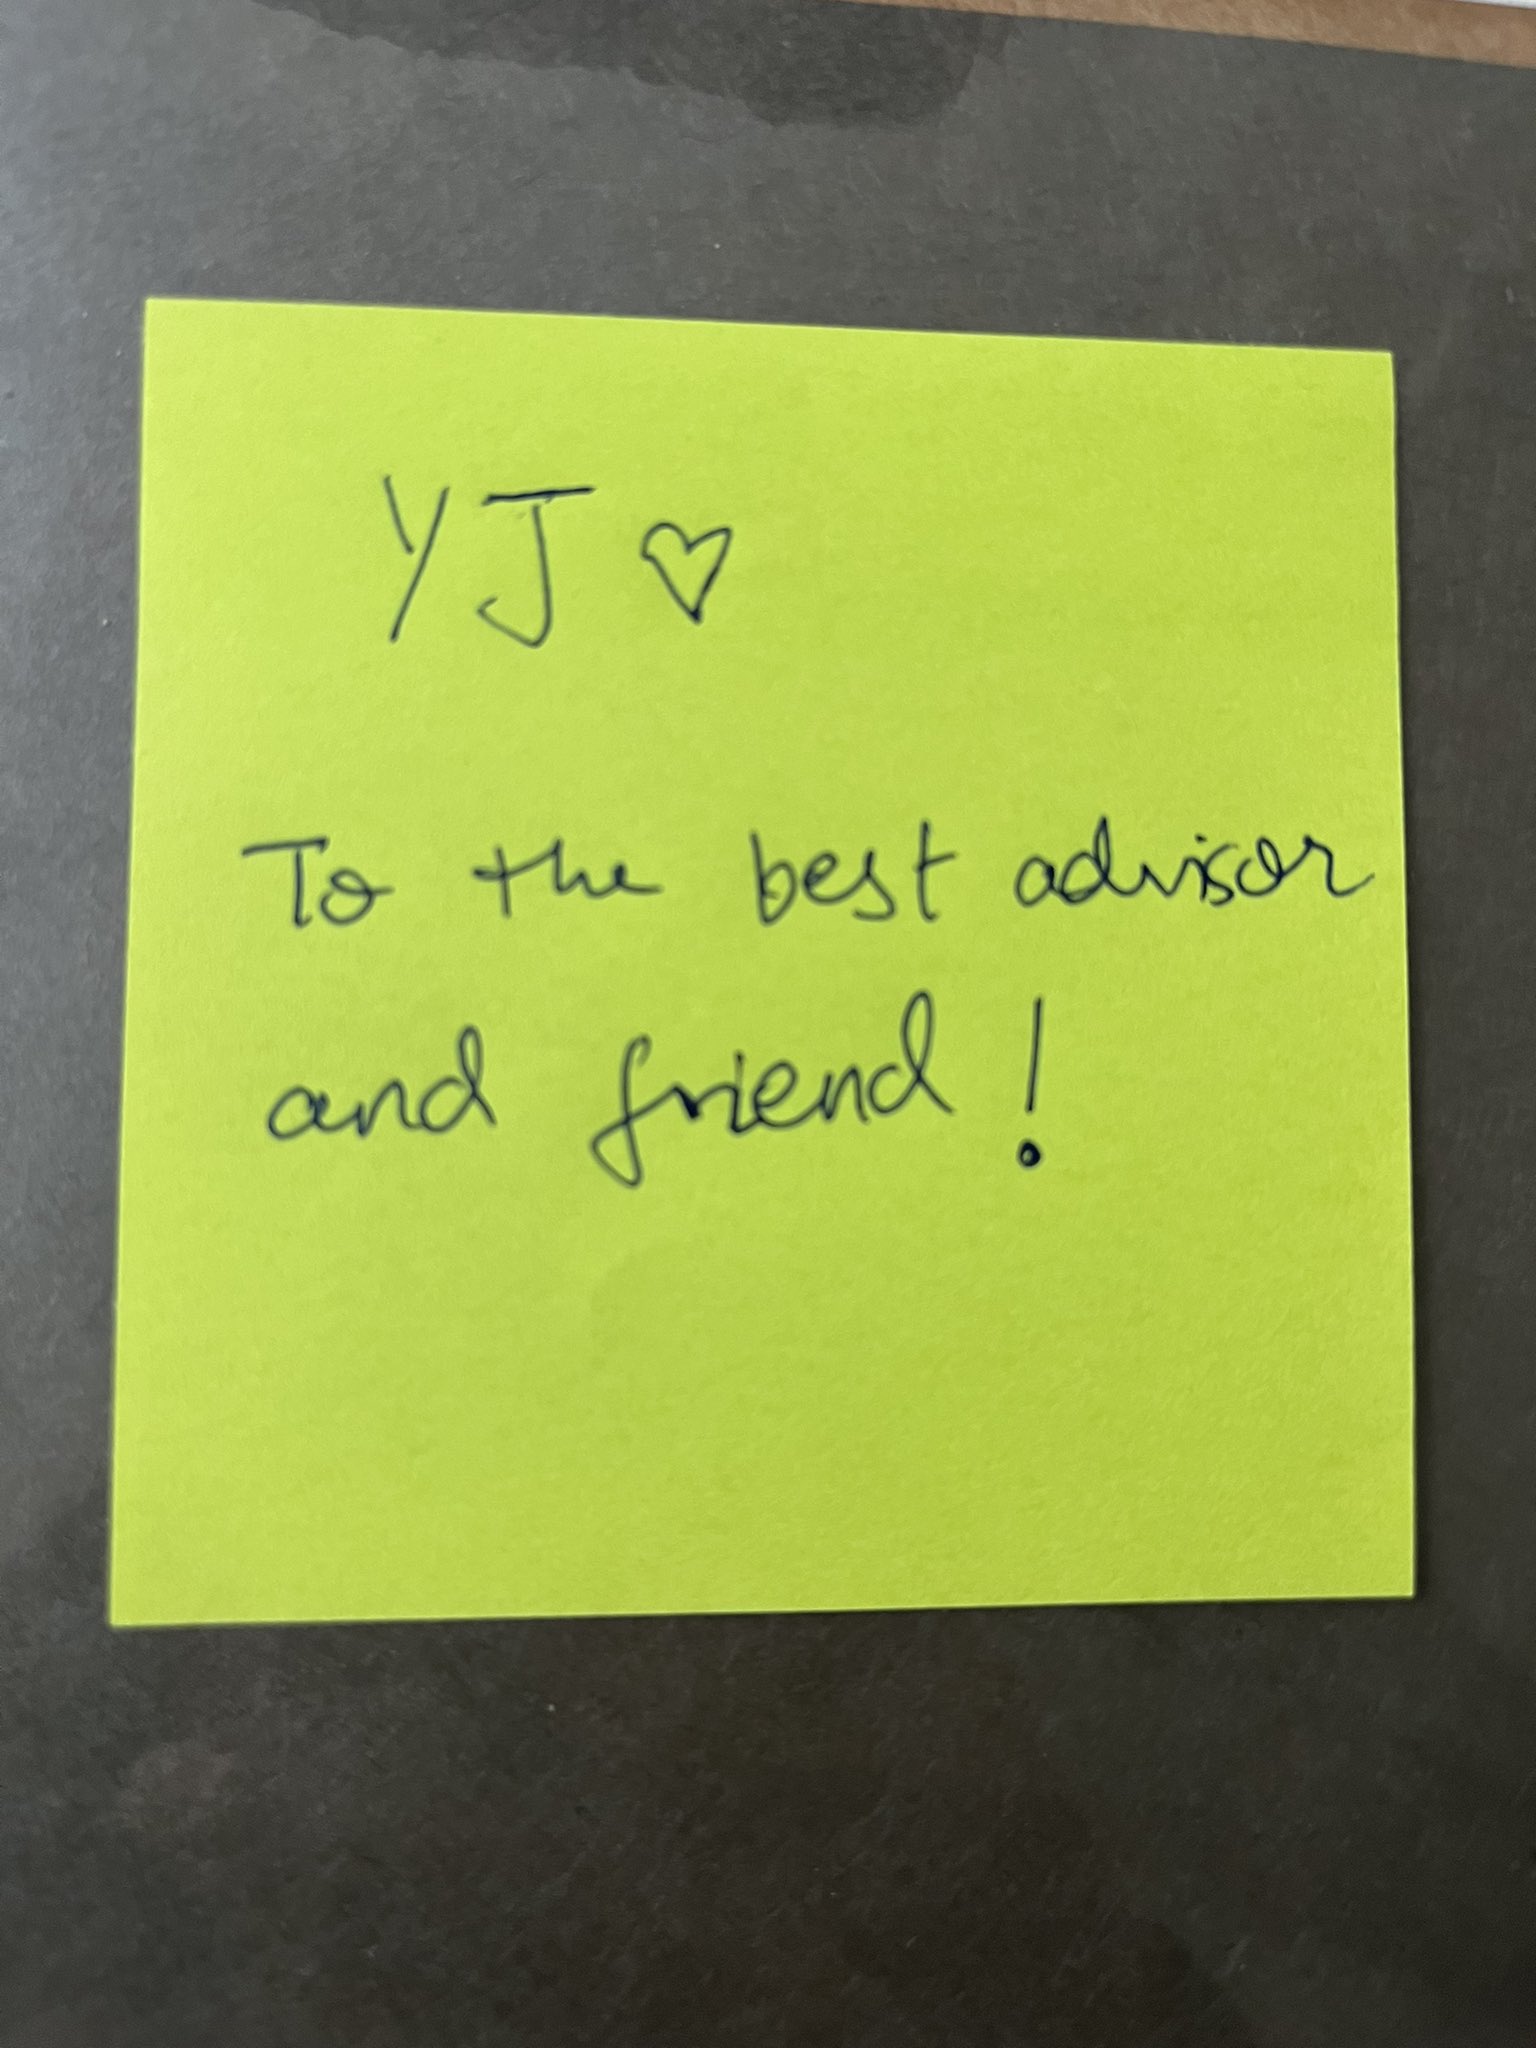 YJ ♡
To the best advisor
and friend!